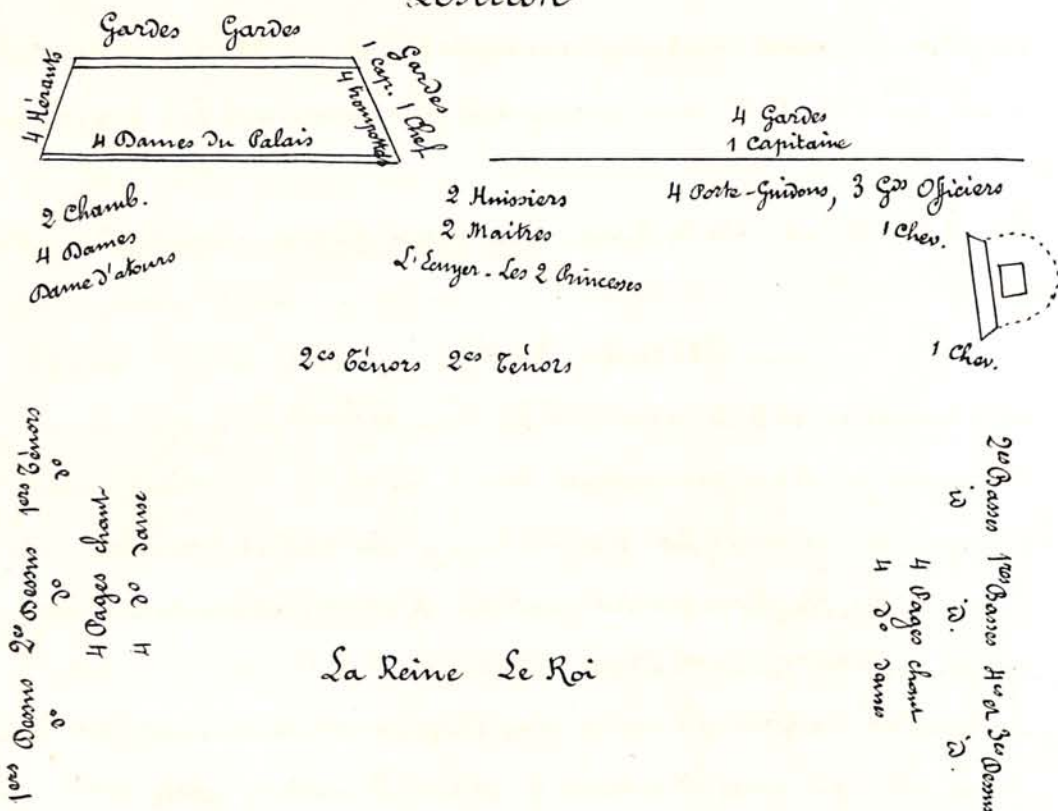 Position
Gardes Gardes
4 Hérauts
4 Dames du Palais
4 trompettes
Gardes
1 cap. 1 Chef
4 Gardes
1 Capitaine
2 Chamb.
4 Dames
Dame d'atours
2 Huissiers
2 Maitres
L'Ecuyer - Les 2 Princesses
4 Porte-Guidons, 3 Gds Officiers
1 Chev.
1 Chev.
2es Ténors 2es Ténors
1ers Dessus 2es Dessus 1ers Ténors
do do do
4 Pages chant
4 do danse
La Reine Le Roi
2es Basses 1res Basses 4es et 3es Dessus
id id. id.
4 Pages chant
4 do danses